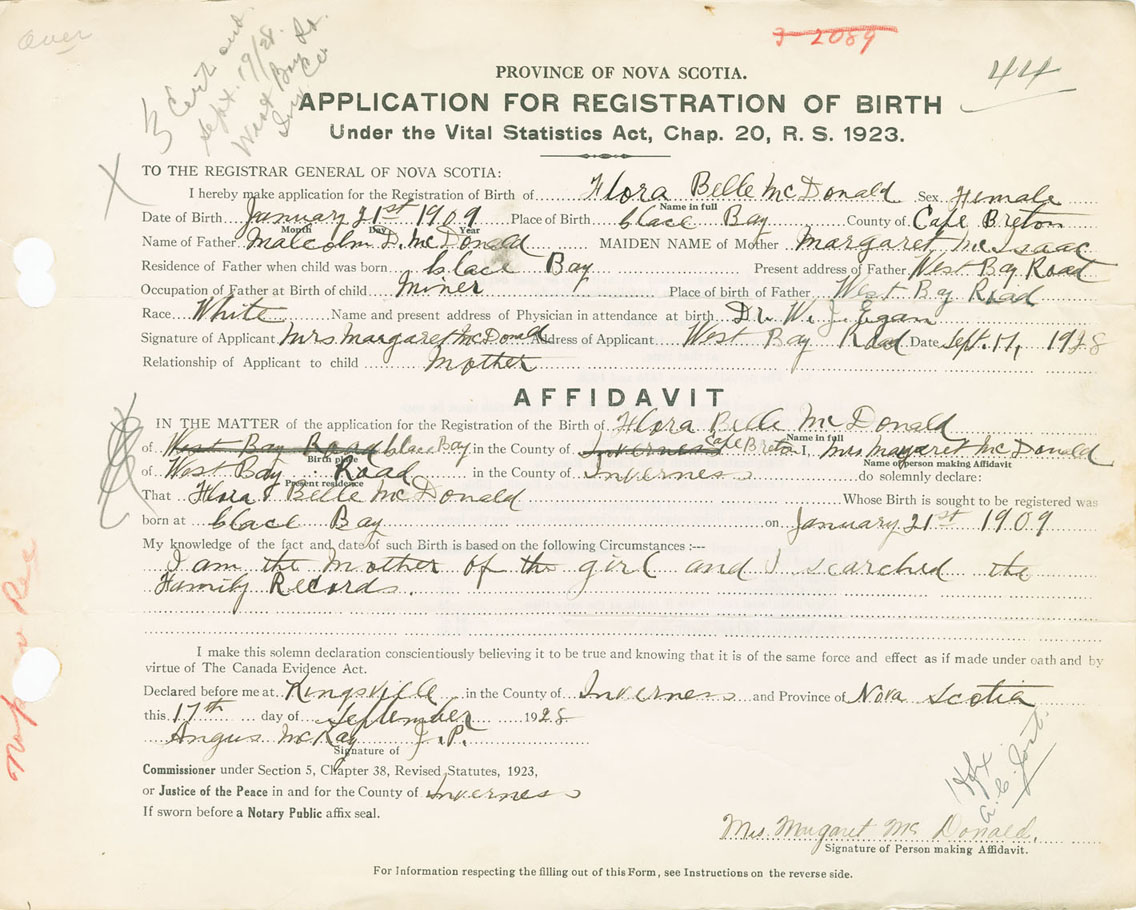 Over
3 2089
44
½ Cert out
Sept. 19/28.
West Bay Rd.
Inv Co
PROVINCE OF NOVA SCOTIA.
APPLICATION FOR REGISTRATION OF BIRTH
Under the Vital Statistics Act, Chap. 20, R. S. 1923.
X
TO THE REGISTRAR GENERAL OF NOVA SCOTIA:
I hereby make application for the Registration of Birth of Flora Belle McDonald Sex Female
Name in full
Date of Birth January 21st 1909 Place of Birth Glace Bay County of Cape Breton
Month Day Year
Name of Father Malcolm D. McDonald MAIDEN NAME of Mother Margaret McIsaac
Residence of Father when child was born Glace Bay Present address of Father West Bay Road
Occupation of Father at Birth of child Miner Place of birth of Father West Bay Road
Race White Name and present address of Physician in attendance at birth Dr. W. J. Egan
Signature of Applicant Mrs. Margaret McDonald Address of Applicant West Bay Road Date Sept. 17, 1928
Relationship of Applicant to child Mother
AFFIDAVIT
IN THE MATTER of the application for the Registration of the Birth of Flora Belle McDonald
Name in full
of West Bay Road Glace Bay in the County of Inverness Cape Breton I, Mrs Margaret McDonald
Birth place Name of person making Affidavit
of West Bay Road in the County of Inverness do solemnly declare:
Present residence
That Flora Belle McDonald Whose Birth is sought to be registered was
born at Glace Bay on January 21st 1909
My knowledge of the fact and date of such Birth is based on the following Circumstances :---
I am the Mother of the girl and I searched the
Family Records.
I make this solemn declaration conscientiously believing it to be true and knowing that it is of the same force and effect as if made under oath and by
virtue of The Canada Evidence Act.
Declared before me at Kingsville in the County of Inverness and Province of Nova Scotia
this 17th day of September 1928
Angus McKay J.P.
Signature of
Commissioner under Section 5, Chapter 38, Revised Statutes, 1923,
or Justice of the Peace in and for the County of Inverness
If sworn before a Notary Public affix seal.
Hfx
A. C. Jost
Mrs. Margaret Mc Donald.
Signature of Person making Affidavit.
For Information respecting the filling out of this Form, see Instructions on the reverse side.